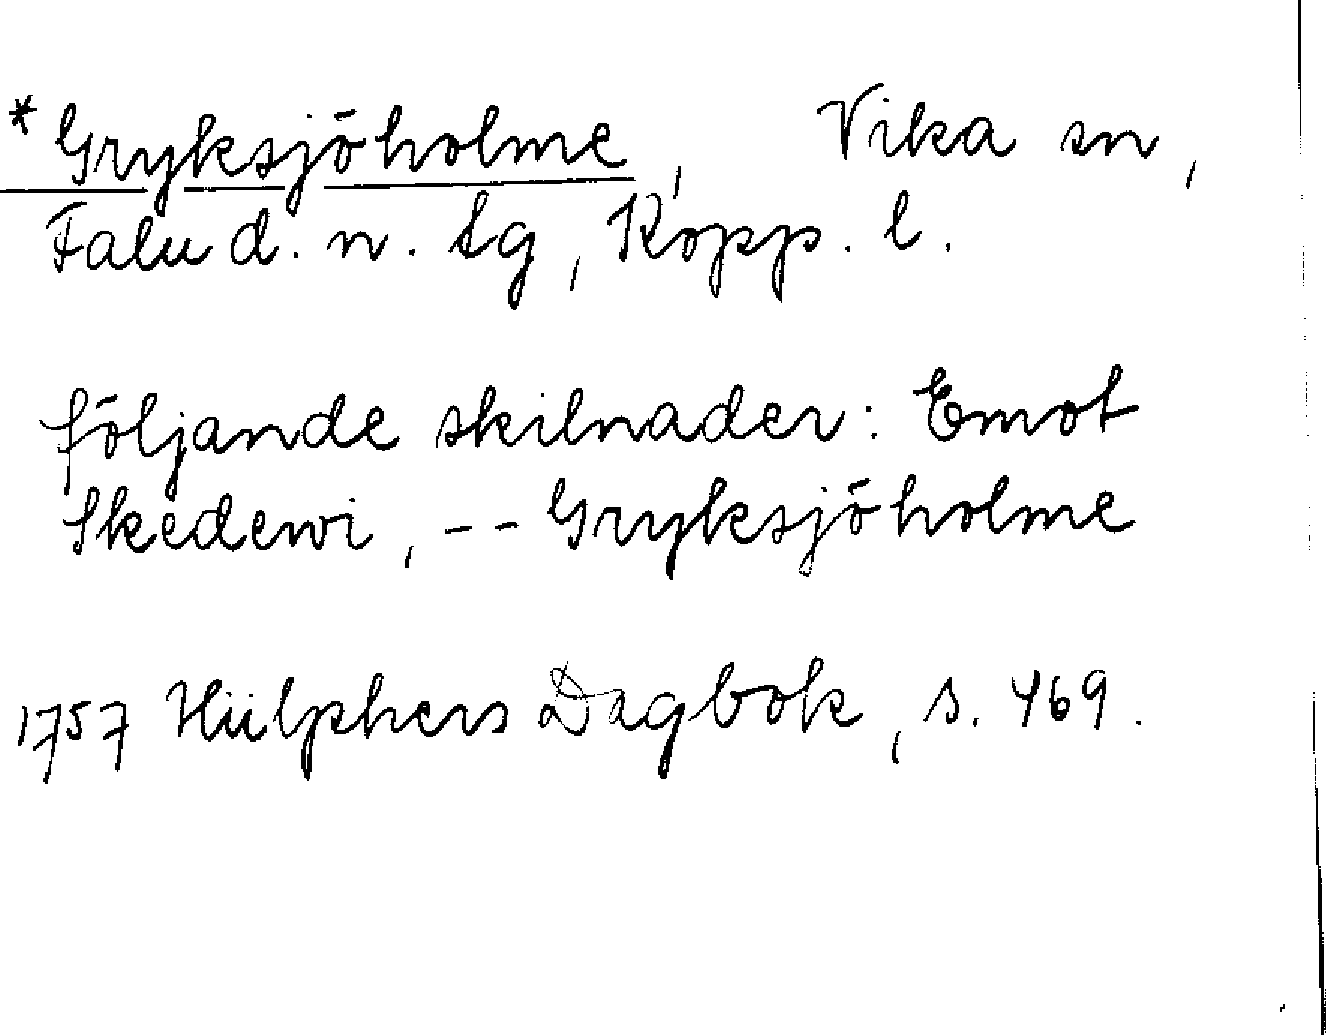 *Gryksjöholme, Vika sn,
Falu d. n. tg, Kopp. l.
följande skilnader: Emot
Skedewi, -- Gryksjöholme
1757 Hülphers Dagbok, s. 469.